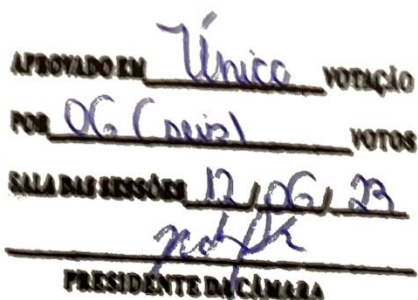 APROVADO EM Única VOTAÇÃO
POR 06 (seis) VOTOS
SALA DAS SESSÕES 12/06/23
PRESIDENTE DA CÂMARA